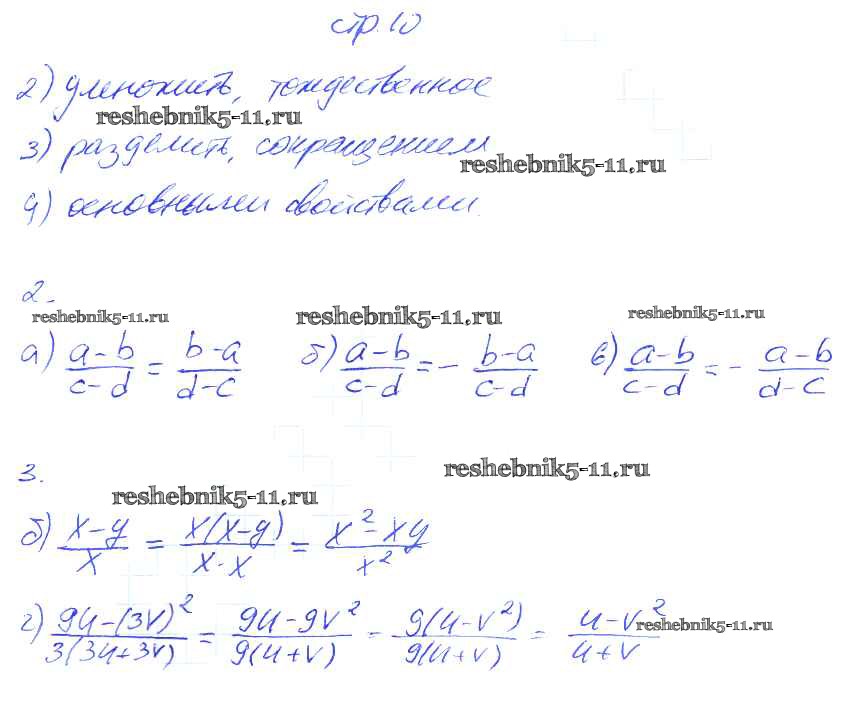 стр. 10
2) умножить, тождественное
reshebnik5-11.ru
3) разделить, сокращением
reshebnik5-11.ru
4) основными свойствами.
2.
reshebnik5-11.ru reshebnik5-11.ru reshebnik5-11.ru
а) (a-b)/(c-d) = (b-a)/(d-c) б) (a-b)/(c-d) = - (b-a)/(c-d) в) (a-b)/(c-d) = - (a-b)/(d-c)
3.
reshebnik5-11.ru
reshebnik5-11.ru
б) (x-y)/x = x(x-y)/(x·x) = (x²-xy)/x²
г) (9u-(3v)²)/(3(3u+3v)) = (9u-9v²)/(9(u+v)) = 9(u-v²)/(9(u+v)) = (u-v²)/(u+v)
reshebnik5-11.ru